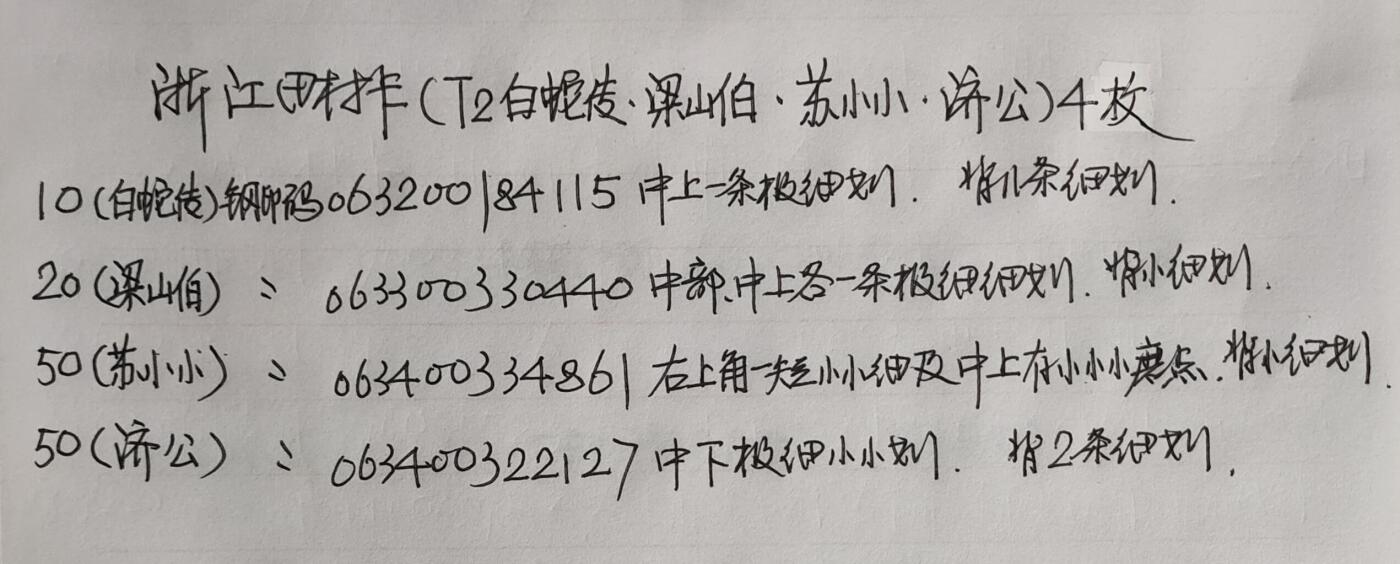 浙江田村卡(T2白蛇传·梁山伯·苏小小·济公)4枚
10(白蛇传)钢印码063200184115中上一条极细划.背几条细划.
20(梁山伯)〃063300330440中部、中上各一条极细细划.背小细划.
50(苏小小)〃063400334861右上角一短小小细及中上有小小小磨点.背小细划.
50(济公)〃063400322127中下极细小小划.背2条细划.